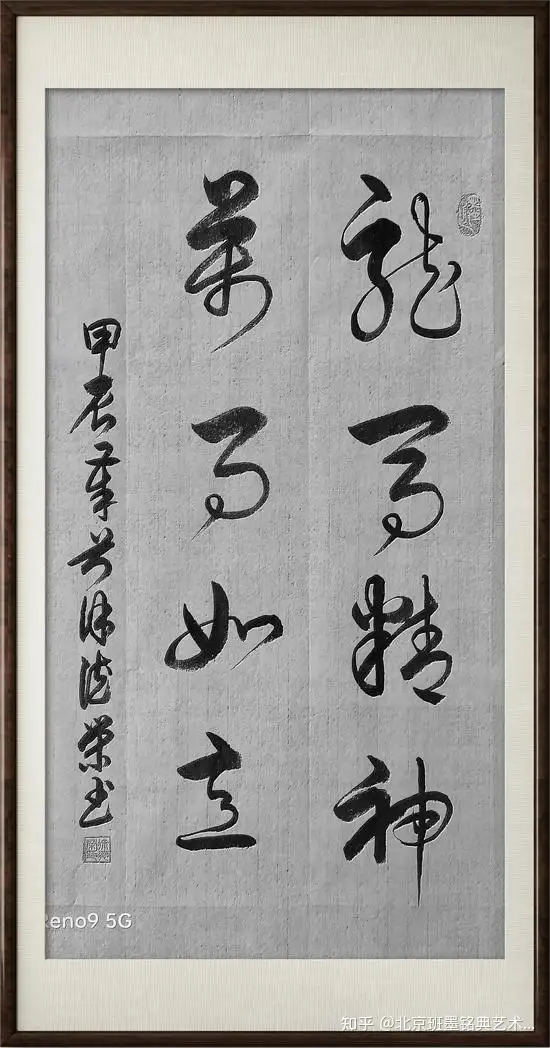 龍馬精神
萬事如意
甲辰榮書
Reno9 5G
知乎 @北京班墨铭典艺术...